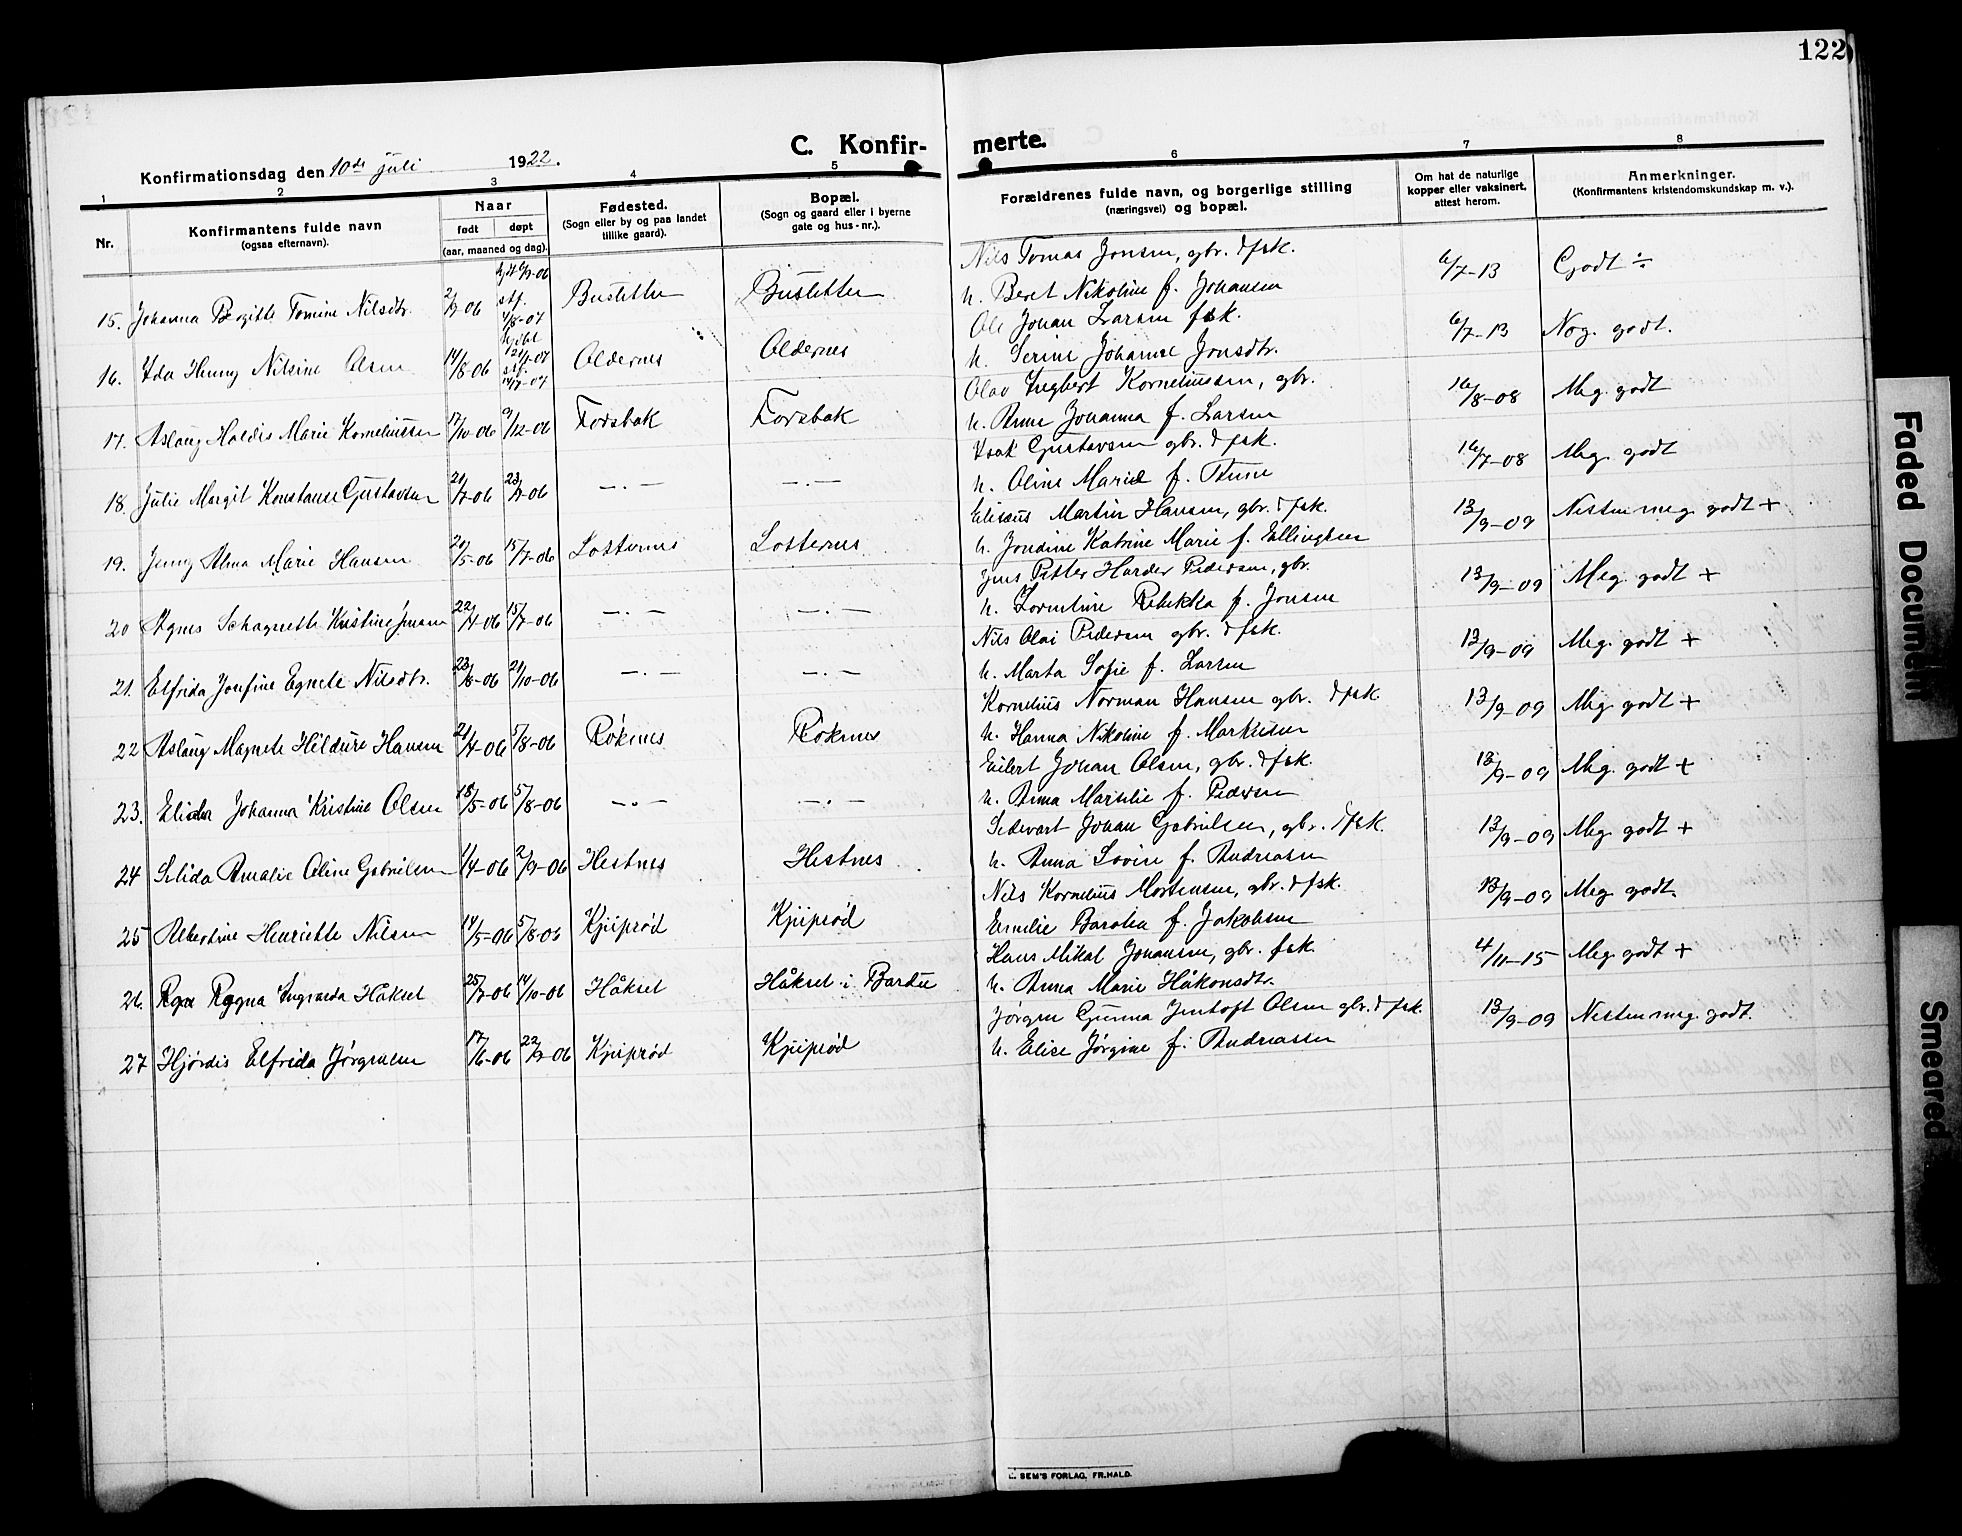 122
C. Konfir-
merte.
Konfirmationsdag den 10de juli 1922.
1 2 3 4 5 6 7 8
Nr.
Konfirmantens fulde navn
(ogsaa efternavn).
Naar
født døpt
(aar, maaned og dag).
Fødested.
(Sogn eller by og paa landet
tillike gaard).
Bopæl.
(Sogn og gaard eller i byerne
gate og hus-nr.).
Forældrenes fulde navn, og borgerlige stilling
(næringsvei) og bopæl.
Om hat de naturlige
kopper eller vaksinert,
attest herom.
Anmerkninger.
(Konfirmantens kristendomskundskap m. v.).
15. Johanna Birgitte Tomine Nilsdtr. stf. 4/8-07
Nils Tomas Jonsen, gbr. & fsk. 6/7-13 Godt ÷
h. Beret Nikoline f. Johansen
16. Ida Henny Nilsine Olsen 14/8-06 stf. Oldernes Oldernes
Ole Johan Larsen fsk. 6/7-13 Nog. godt.
h. Serine Johanne Jonsdtr.
17. Aslaug Haldis Marie Korneliussen 17/10-06 9/12-06 Forsbak Forsbak
Olav Ingbert Korneliussen, gbr. 16/8-08 Meg. godt
h. Anne Johanna f. Larsen
18. Julie Margit Konstanse Gustavsen 21/7-06 23/9-06 —.— —.—
Isak Gustavsen gbr. & fsk. 16/7-08 Meg. godt
h. Oline Marie f. Thune
19. Jenny Alma Marie Hansen 20/5-06 15/7-06
Elisæus Martin Hansen, gbr. & fsk. 13/9-09 Nesten meg. godt +
h. Jondine Katrine Marie f. Ellingsen
20 Agnes Schagnette Kristine Jensen 22/4-06 15/7-06 —.— —.—
Jens Petter Harder Pedersen, gbr. 13/9-09 Meg. godt +
h. Lorentine Rebekka f. Jonsen
21. Elfrida Josefine Egnete Nilsdtr. 23/8-06 21/10-06 —.— —.—
Nils Olai Pedersen gbr. & fsk. 13/9-09 Meg. godt +
h. Marta Sofie f. Larsen
22 Aslaug Magnete Hildure Hansen 21/4-06 5/8-06 Røknes Røknes
Kornelius Norman Hansen gbr. & fsk. 13/9-09 Meg. godt +
h. Hanna Nikoline f. Markussen
23. Elida Johanna Kristine Olsen 18/5-06 5/8-06 —.— —.—
Eilert Johan Olsen, gbr. & fsk. 13/9-09 Meg. godt +
h. Anna Marselie f. Pedersen
24 Selida Amalie Oline Gabrielsen 1/4-06 2/9-06 Hestnes Hestnes
Sedevart Johan Gabrielsen, gbr. & fsk. 13/9-09 Meg. godt +
h. Anna Lovise f. Andreasen
25 Albertine Henriette Nilsen 14/5-06 5/8-06 Kjeiprød Kjeiprød
Nils Kornelius Mortensen, gbr. & fsk. 13/9-09 Meg. godt.
Emilie f. Jakobsen
26. Ragna Ingvarda Håkset 25/7-06 14/10-06 Håkset Håkset i Bardu
Hans Mikal Johansen, gbr. fsk. 4/11-15 Meg. godt +
h. Anna Marie Håkonsdtr.
27 Hjørdis Elfrida Jørgensen 17/6-06 22/7-06 Kjeiprød Kjeiprød
Jørgen Gunna Jentoft Olsen gbr. & fsk. 13/9-09 Nesten meg. godt.
h. Elise Jørgine f. Andreassen
SEM'S FORLAG, FR.HALD.
Faded Document
Smeared